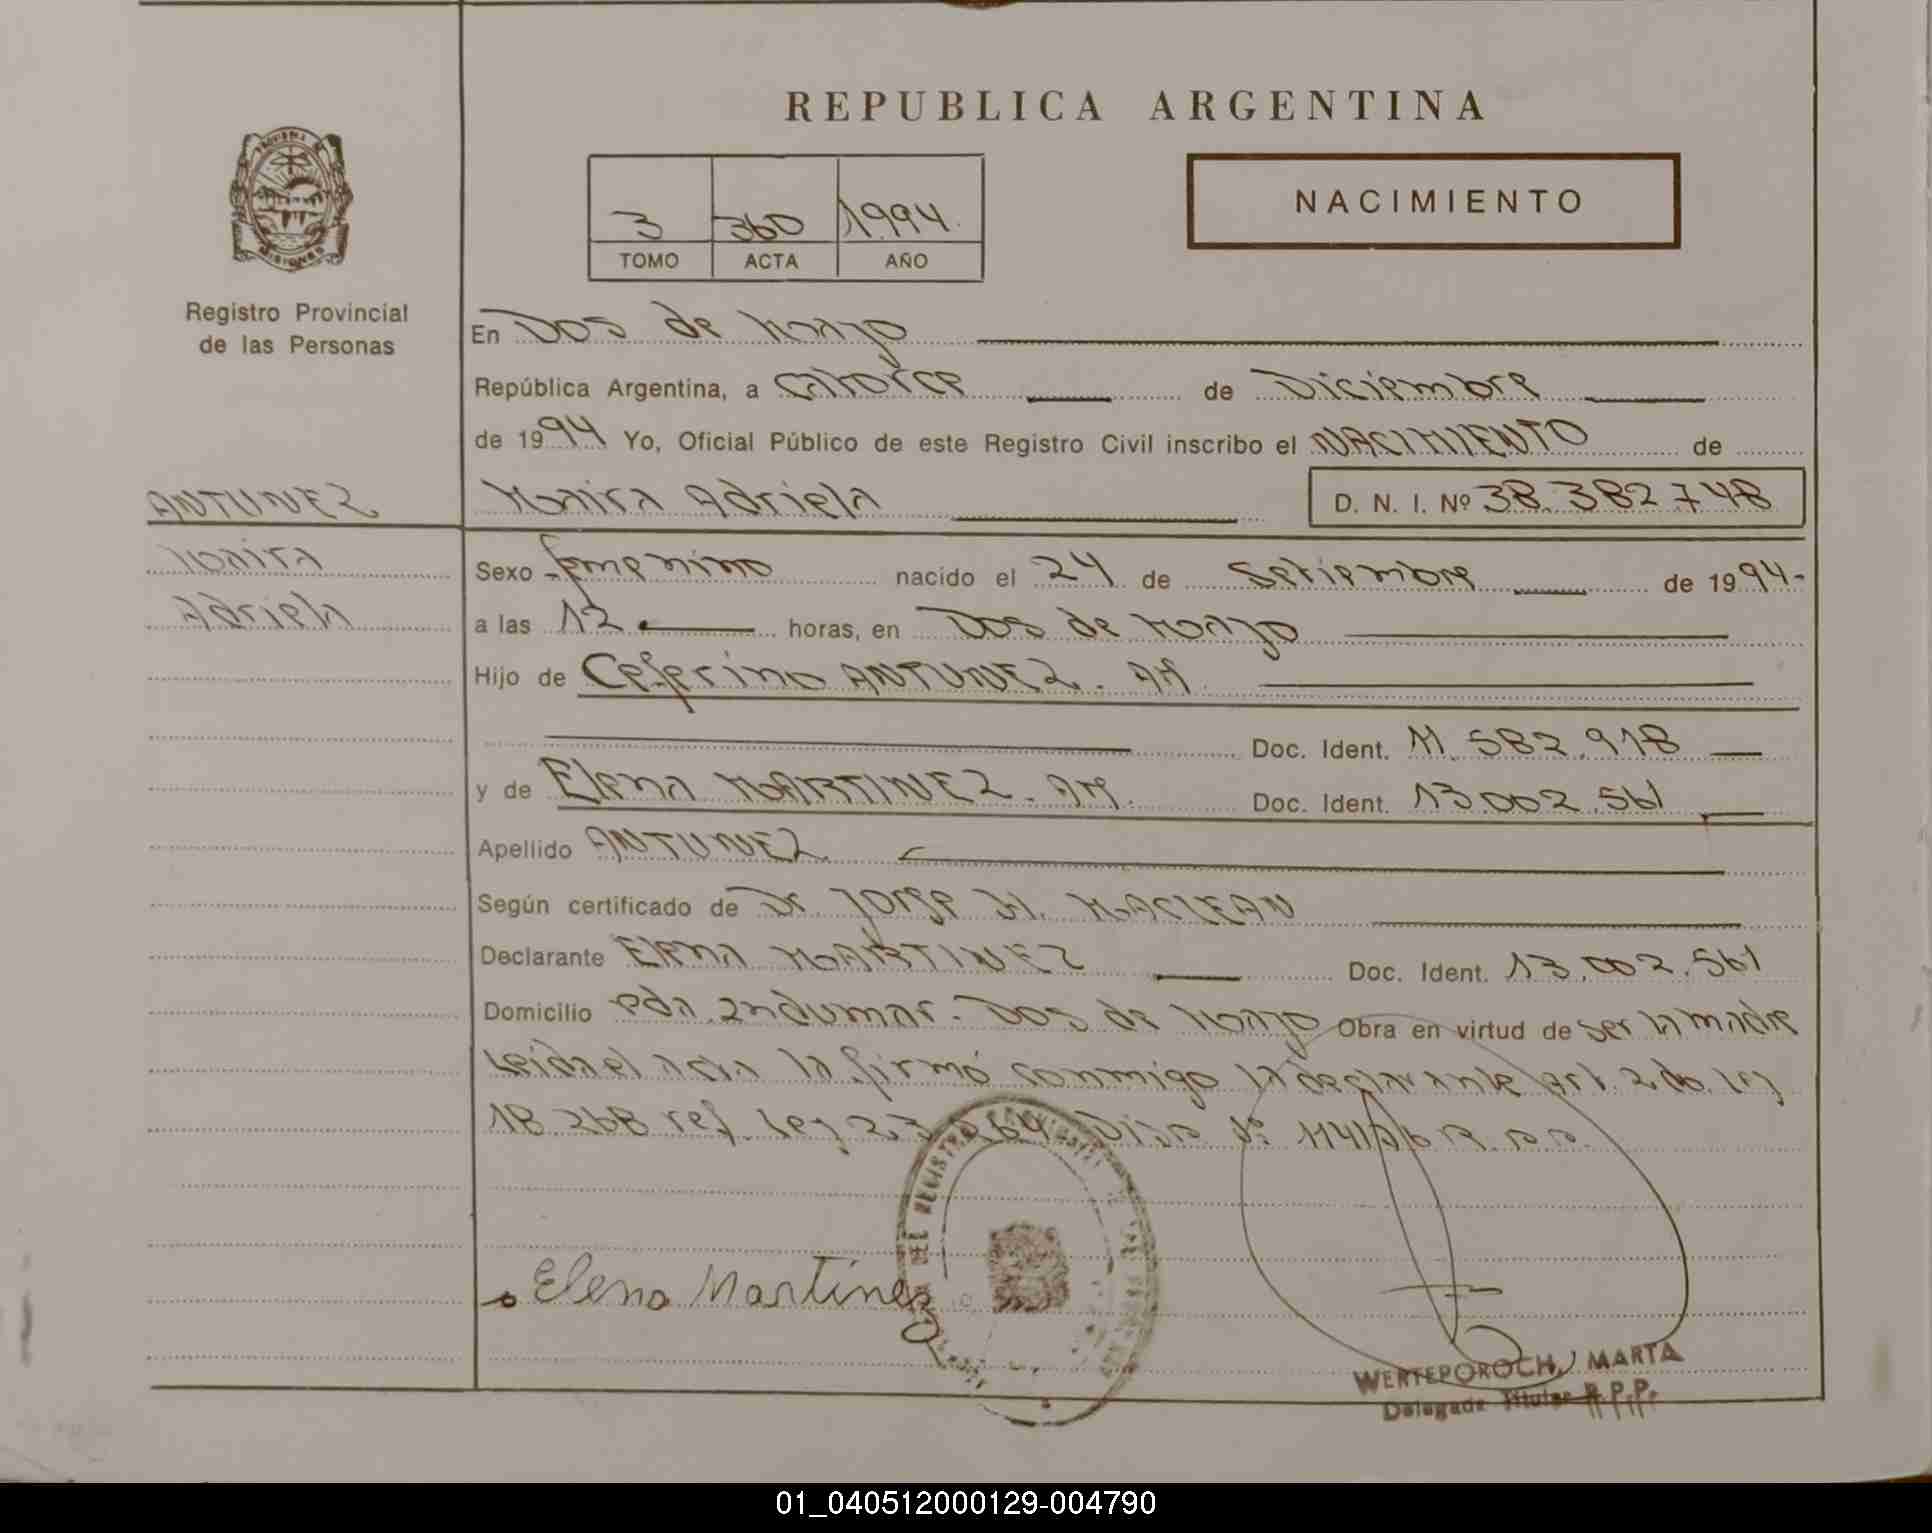 REPUBLICA ARGENTINA
PROVINCIA DE
MISIONES
Registro Provincial
de las Personas
3 360 1994
TOMO ACTA AÑO
NACIMIENTO
En Dos de Mayo
República Argentina, a catorce de Diciembre
de 1994 Yo, Oficial Público de este Registro Civil inscribo el NACIMIENTO de
Maira Adriela D. N. I. Nº 38.382.748
ANTUNEZ
Maira
Adriela
Sexo femenino nacido el 24 de Setiembre de 1994-
a las 12 horas, en Dos de Mayo
Hijo de Ceferino ANTUNEZ. AM
Doc. Ident. 11.582.918
y de Elena MARTINEZ. AM. Doc. Ident. 13.002.561
Apellido ANTUNEZ
Según certificado de Dr. Jorge H. MACLEAN
Declarante Elena MARTINEZ Doc. Ident. 13.002.561
Domicilio Pda. Indumar - Dos de Mayo Obra en virtud de ser la madre
Leida el acta la firmó conmigo la declarante Art. 2do. Ley
18.268 ref. Ley Disp. Nº R.P.P.
DEL REGISTRO
Elena Martinez
WERTEPOROCH, MARTA
Delegada Titular R.P.P.
01_040512000129-004790